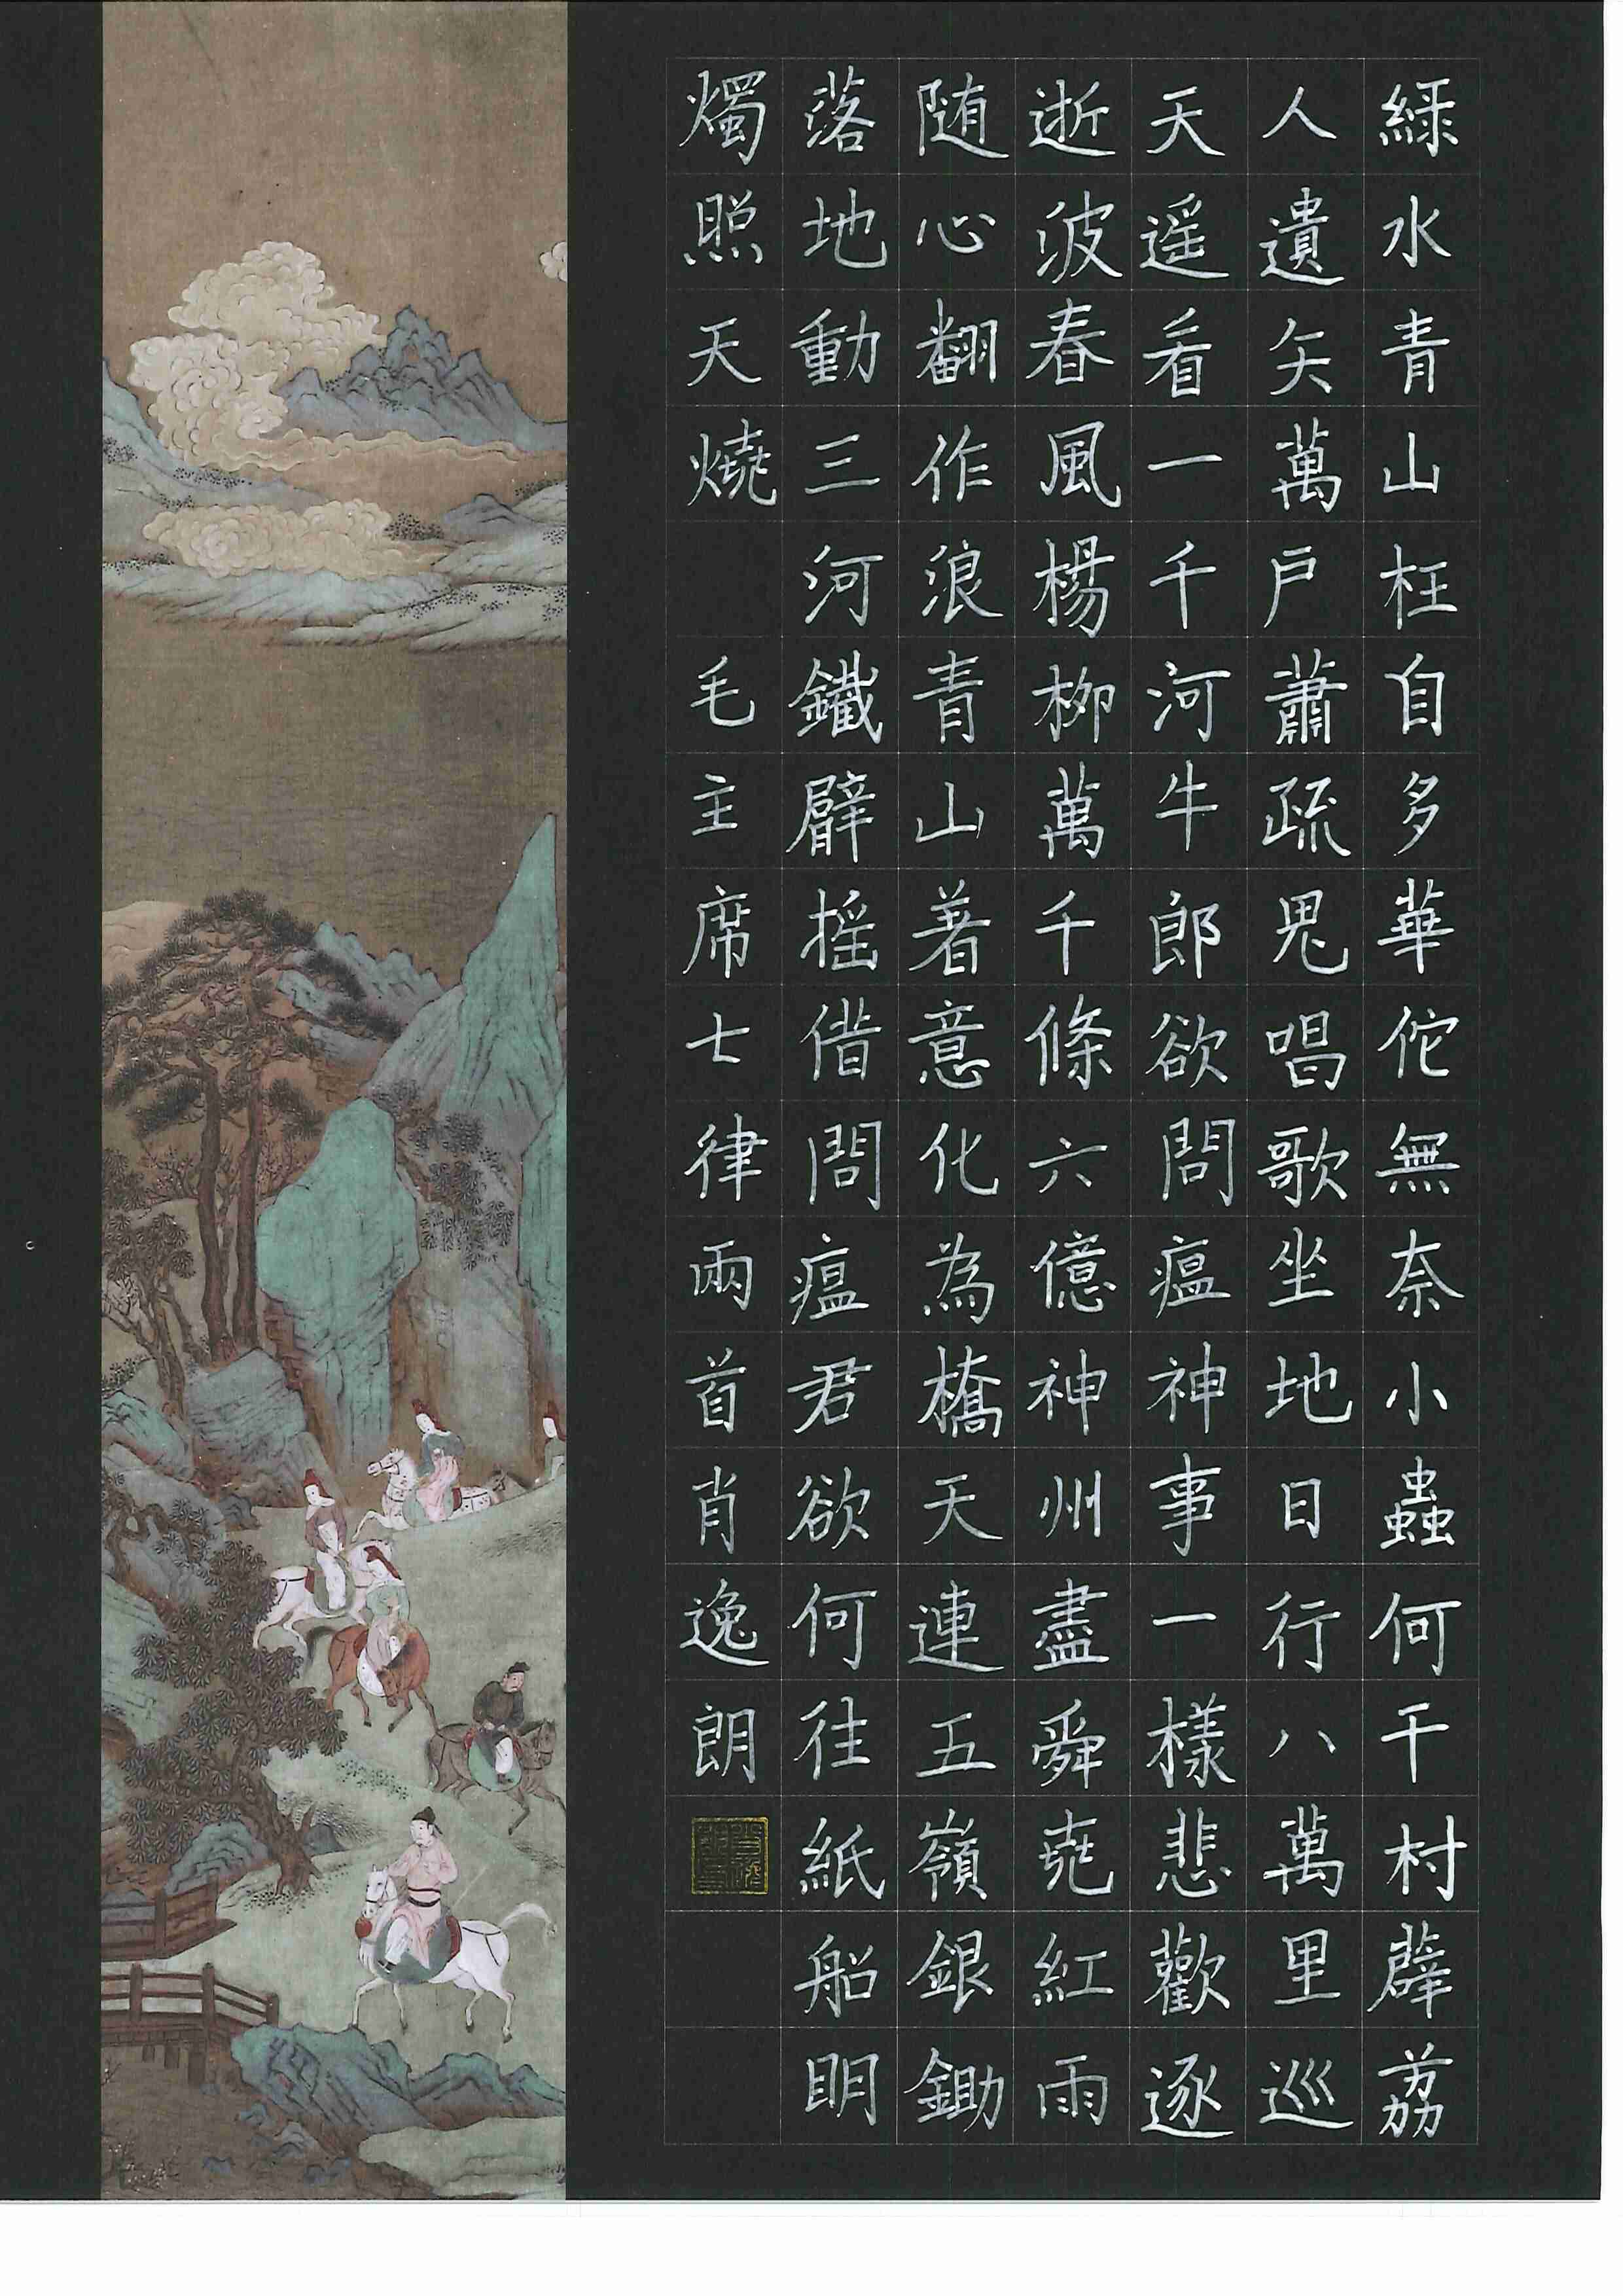 綠水青山枉自多華佗無奈小蟲何千村薜荔
人遺矢萬戶蕭疏鬼唱歌坐地日行八萬里巡
天遥看一千河牛郎欲問瘟神事一樣悲歡逐
逝波春風楊柳萬千條六億神州盡舜堯紅雨
随心翻作浪青山着意化為橋天連五嶺銀鋤
落地動三河鐵臂摇借問瘟君欲何往紙船明
燭照天燒 毛主席七律兩首肖逸朗